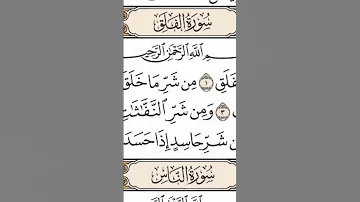 سُورَةُ الفَلَقِ
ـمِ ٱللَّهِ ٱلرَّحْمَٰنِ ٱلرَّحِيـ
ـفَلَقِ ١ مِن شَرِّ مَا خَلَقَ
٣ وَمِن شَرِّ ٱلنَّفَّٰثَٰتِ
ـن شَرِّ حَاسِدٍ إِذَا حَسَدَ
سُورَةُ النَّاسِ